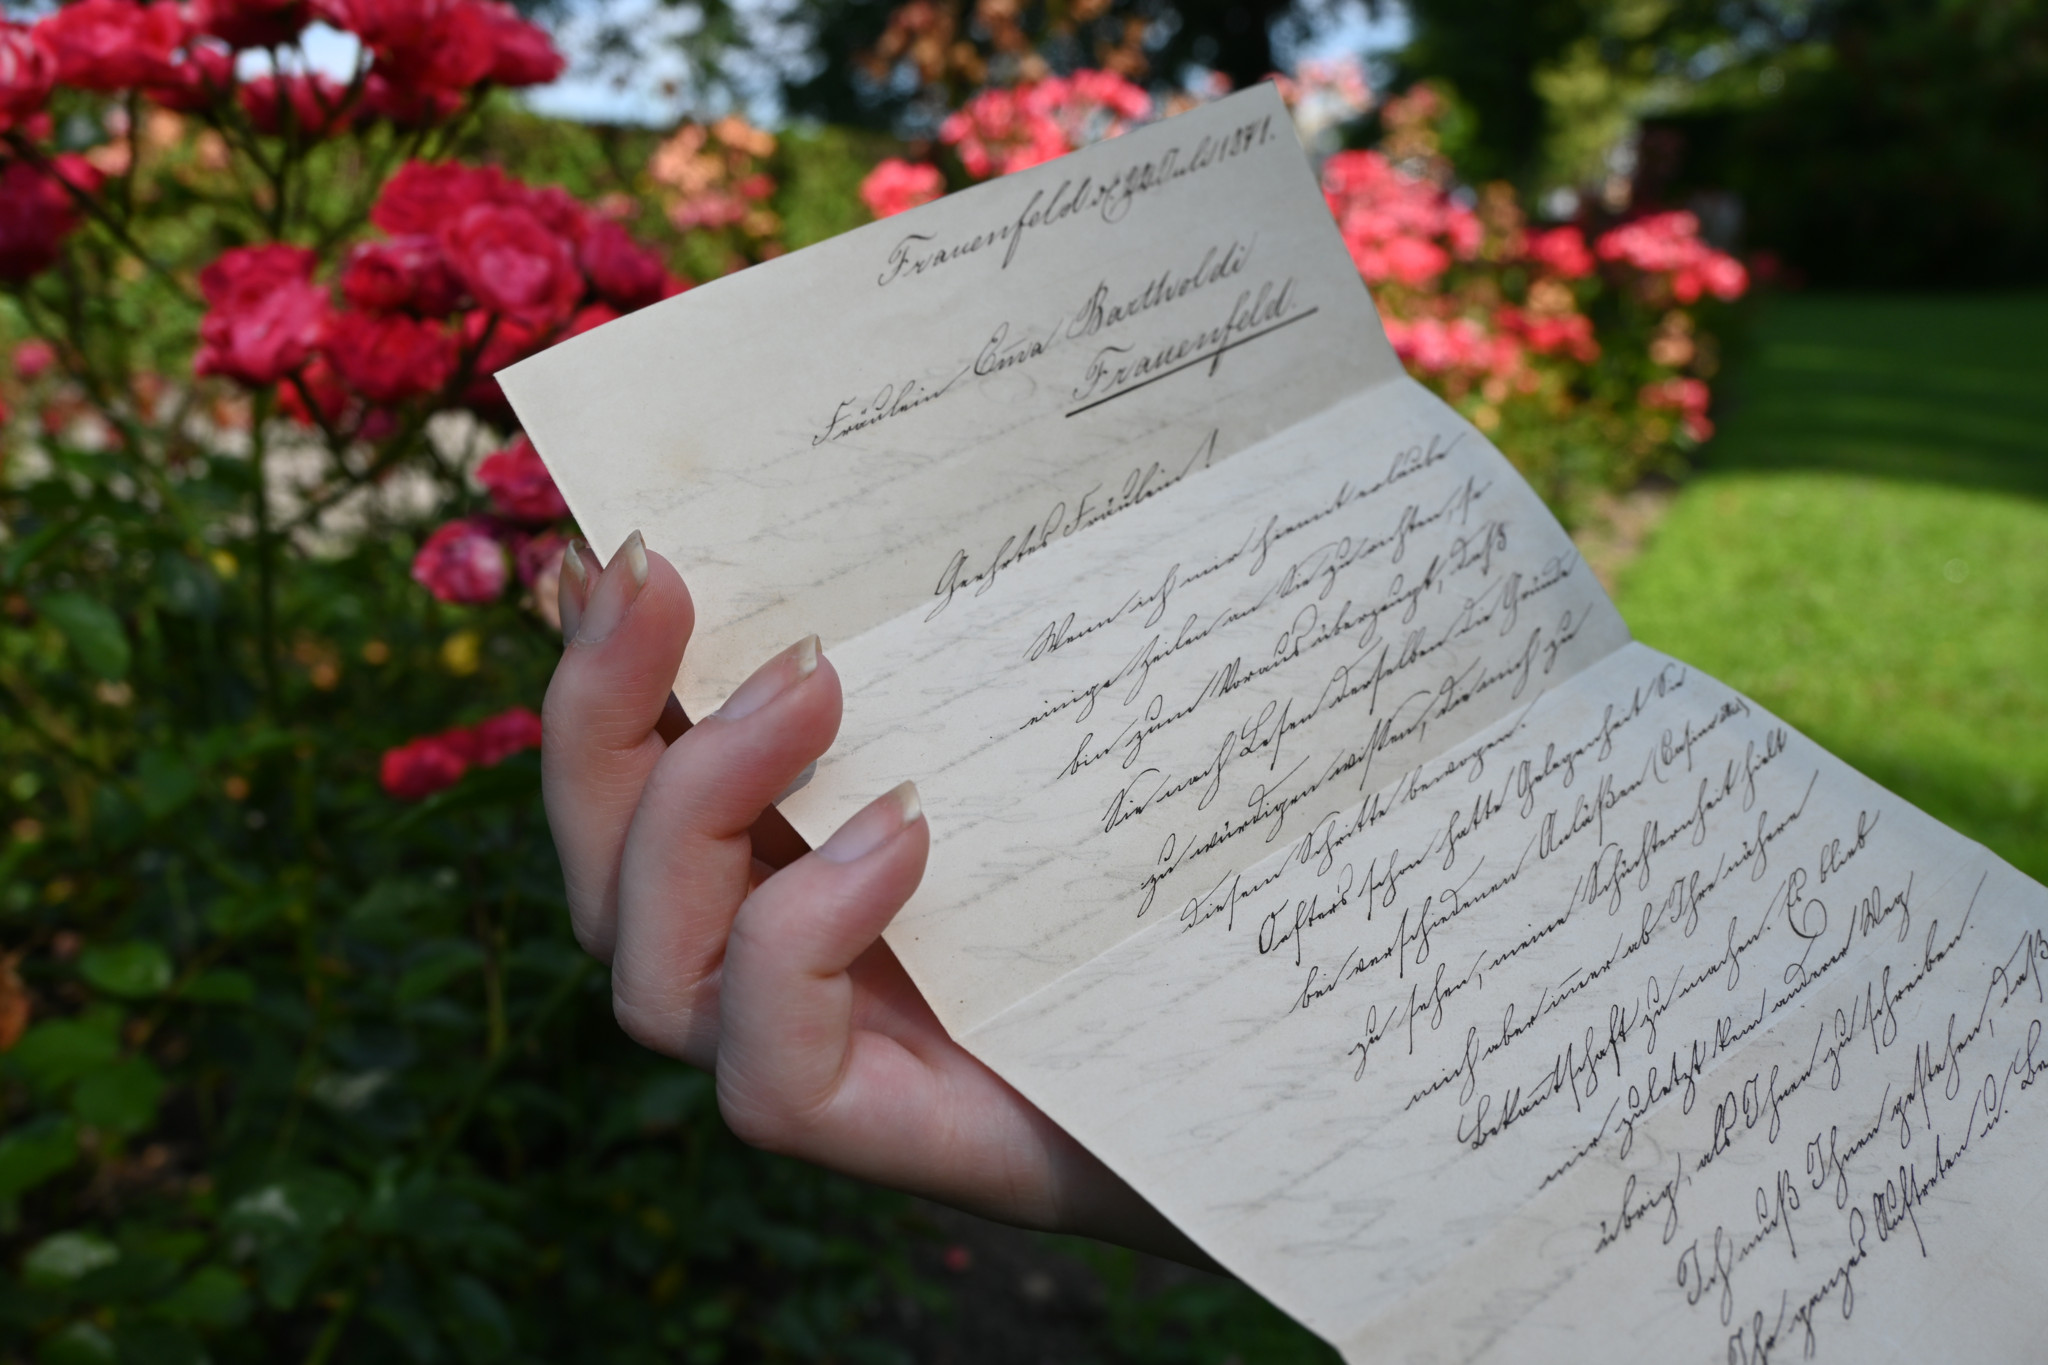 Frauenfeld d. 22 Juli 1871.
Fräulein Em̅a Bartholdi
Frauenfeld.
Geehrtes Fräulein!
Wenn ich mir hiemit erlaube
einige Zeilen an Sie zu richten, so
bin zum Voraus überzeugt, daß
Sie nach Lesen derselben die Gründe
zu würdigen wißen, die mich zu
diesem Schritte bewogen.
Oefters schon hatte Gelegenheit Sie
bei verschiedenen Anläßen (Casino etc)
zu sehen, meine Schüchternheit hielt
mich aber im̅er ab Ihre nähere
Bekan̅tschaft zu machen. Es blieb
mir zuletzt kein anderer Weg
übrig, als Ihnen zu schreiben.
Ich muß Ihnen gestehen, daß
Ihr ganzes Auftreten u. Be